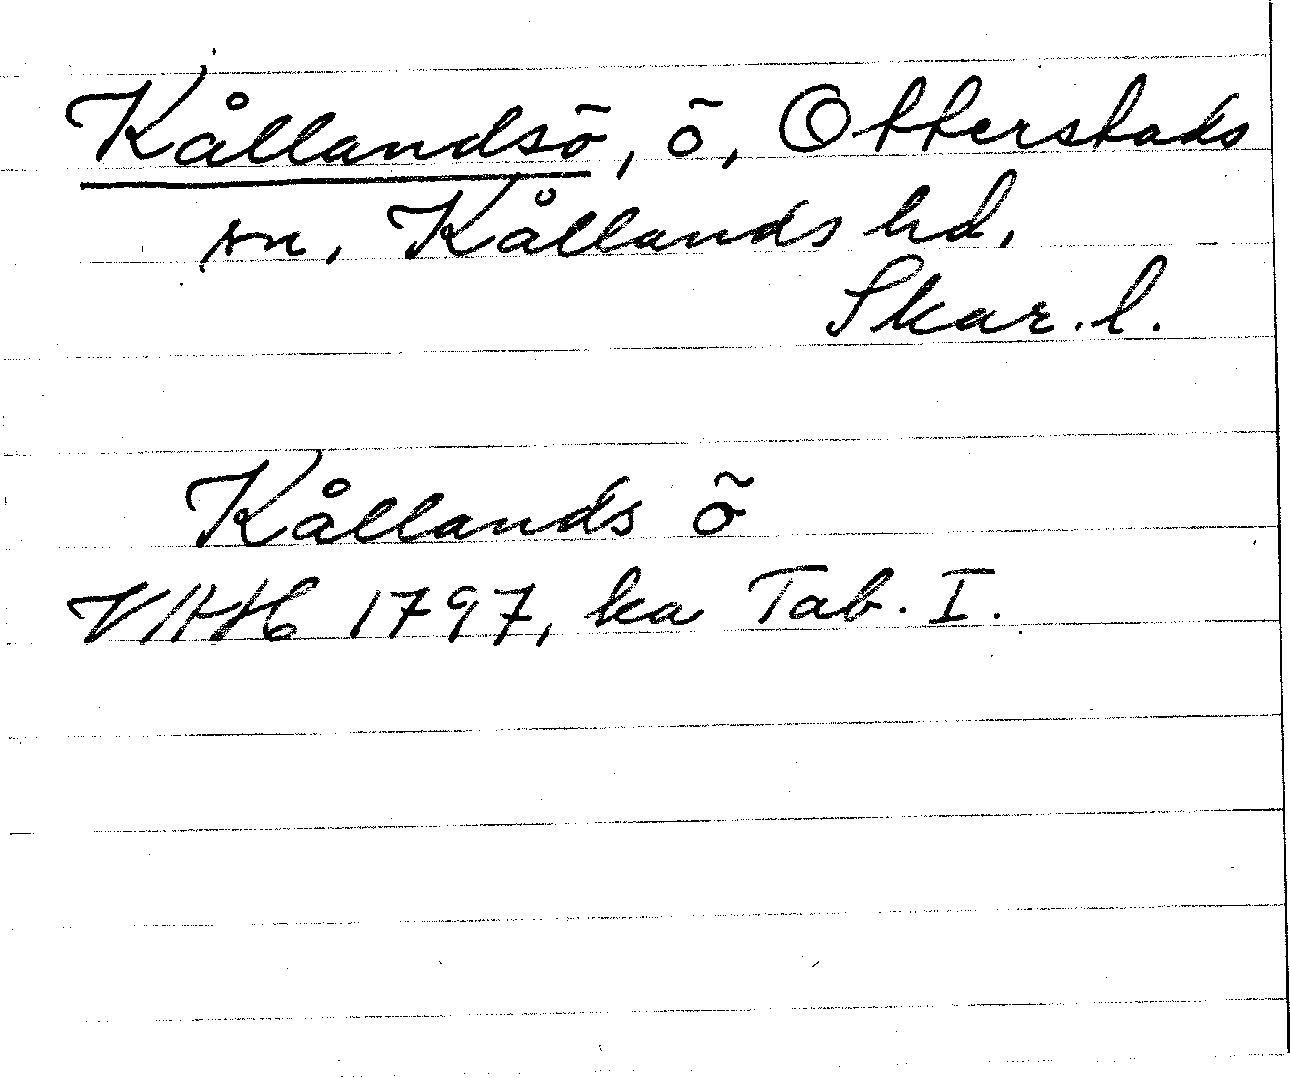 Kållandsö, ö, Otterstads
sn, Kållands hd,
Skar. l.
Kållands ö
VHH 1797, ka Tab. I.